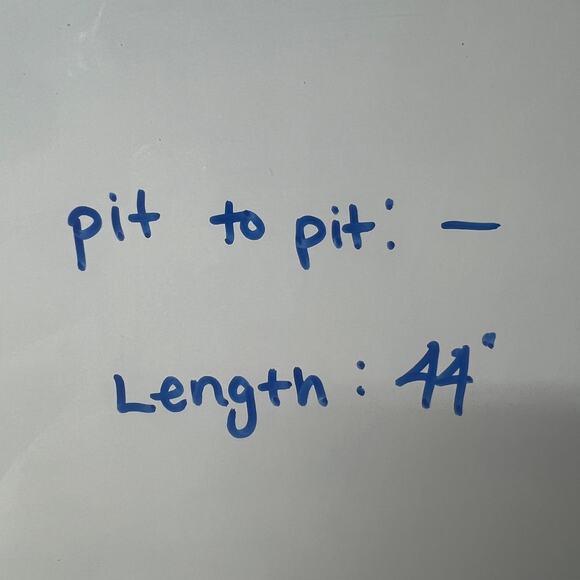 pit to pit: —
Length: 44"